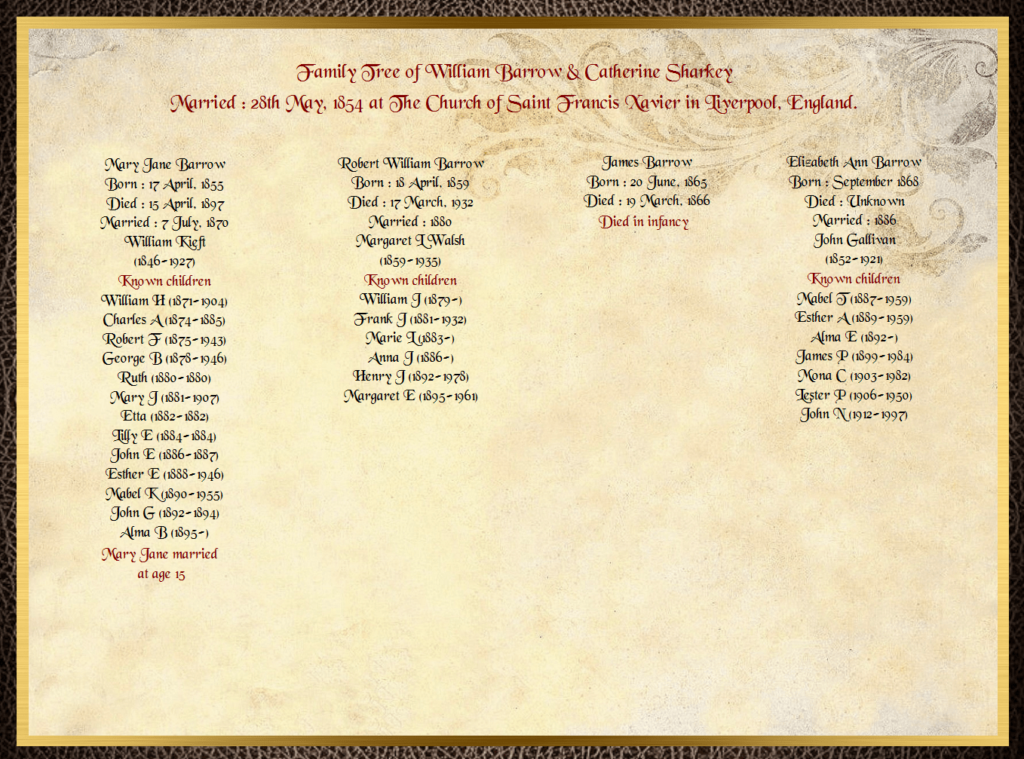 Family Tree of William Barrow & Catherine Sharkey
Married : 28th May, 1854 at The Church of Saint Francis Xavier in Liverpool, England.
Mary Jane Barrow
Born : 17 April, 1855
Died : 15 April, 1897
Married : 7 July, 1870
William Kieft
(1846-1927)
Known children
William H (1871-1904)
Charles A (1874-1885)
Robert F (1875-1943)
George B (1878-1946)
Ruth (1880-1880)
Mary J (1881-1907)
Etta (1882-1882)
Tilly E (1884-1884)
John E (1886-1887)
Esther E (1888-1946)
Mabel K (1890-1955)
John G (1892-1894)
Alma B (1895-)
Mary Jane married
at age 15
Robert William Barrow
Born : 18 April, 1859
Died : 17 March, 1932
Married : 1880
Margaret L Walsh
(1859-1935)
Known children
William J (1879-)
Frank J (1881-1932)
Marie L (1883-)
Anna J (1886-)
Henry J (1892-1978)
Margaret E (1895-1961)
James Barrow
Born : 20 June, 1865
Died : 19 March, 1866
Died in infancy
Elizabeth Ann Barrow
Born : September 1868
Died : Unknown
Married : 1886
John Gallivan
(1852-1921)
Known children
Mabel T (1887-1959)
Esther A (1889-1959)
Alma E (1892-)
James P (1899-1984)
Mona C (1903-1982)
Lester P (1906-1950)
John N (1912-1997)